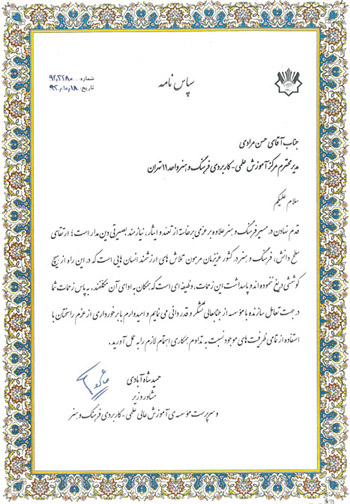 سپاس نامه
شماره: ۹۲,۲۲۸۰۰
تاریخ: ۹۲,۱۰,۱۸
جناب آقای حسن مرادی
مدیر محترم مرکز آموزش علمی - کاربردی فرهنگ و هنر واحد ۱۱ تهران
سلام علیکم
قدم نهادن در مسیر فرهنگ و هنر علاوه بر عزمی برخاسته از تعهد و ایثار، نیازمند بصیرتی دین مدار است؛ ارتقای
سطح دانش، فرهنگ و هنر در کشور عزیزمان مرهون تلاش های ارزشمند انسان هایی است که در این راه از هیچ
کوششی دریغ ننموده اند و پاسداشت این زحمات، وظیفه ای است که همگان به ادای آن مکلفند. به پاس زحمات شما
در جهت تعامل سازنده با مؤسسه از جنابعالی تشکر و قدردانی می نمایم و امیدوارم با برخورداری از عزم راسختان با
استفاده از تمامی ظرفیت های موجود نسبت به تداوم همکاری اهتمام لازم را به عمل آورید.
حمید شاه آبادی
مشاور وزیر
و سرپرست مؤسسه ی آموزش عالی علمی - کاربردی فرهنگ و هنر